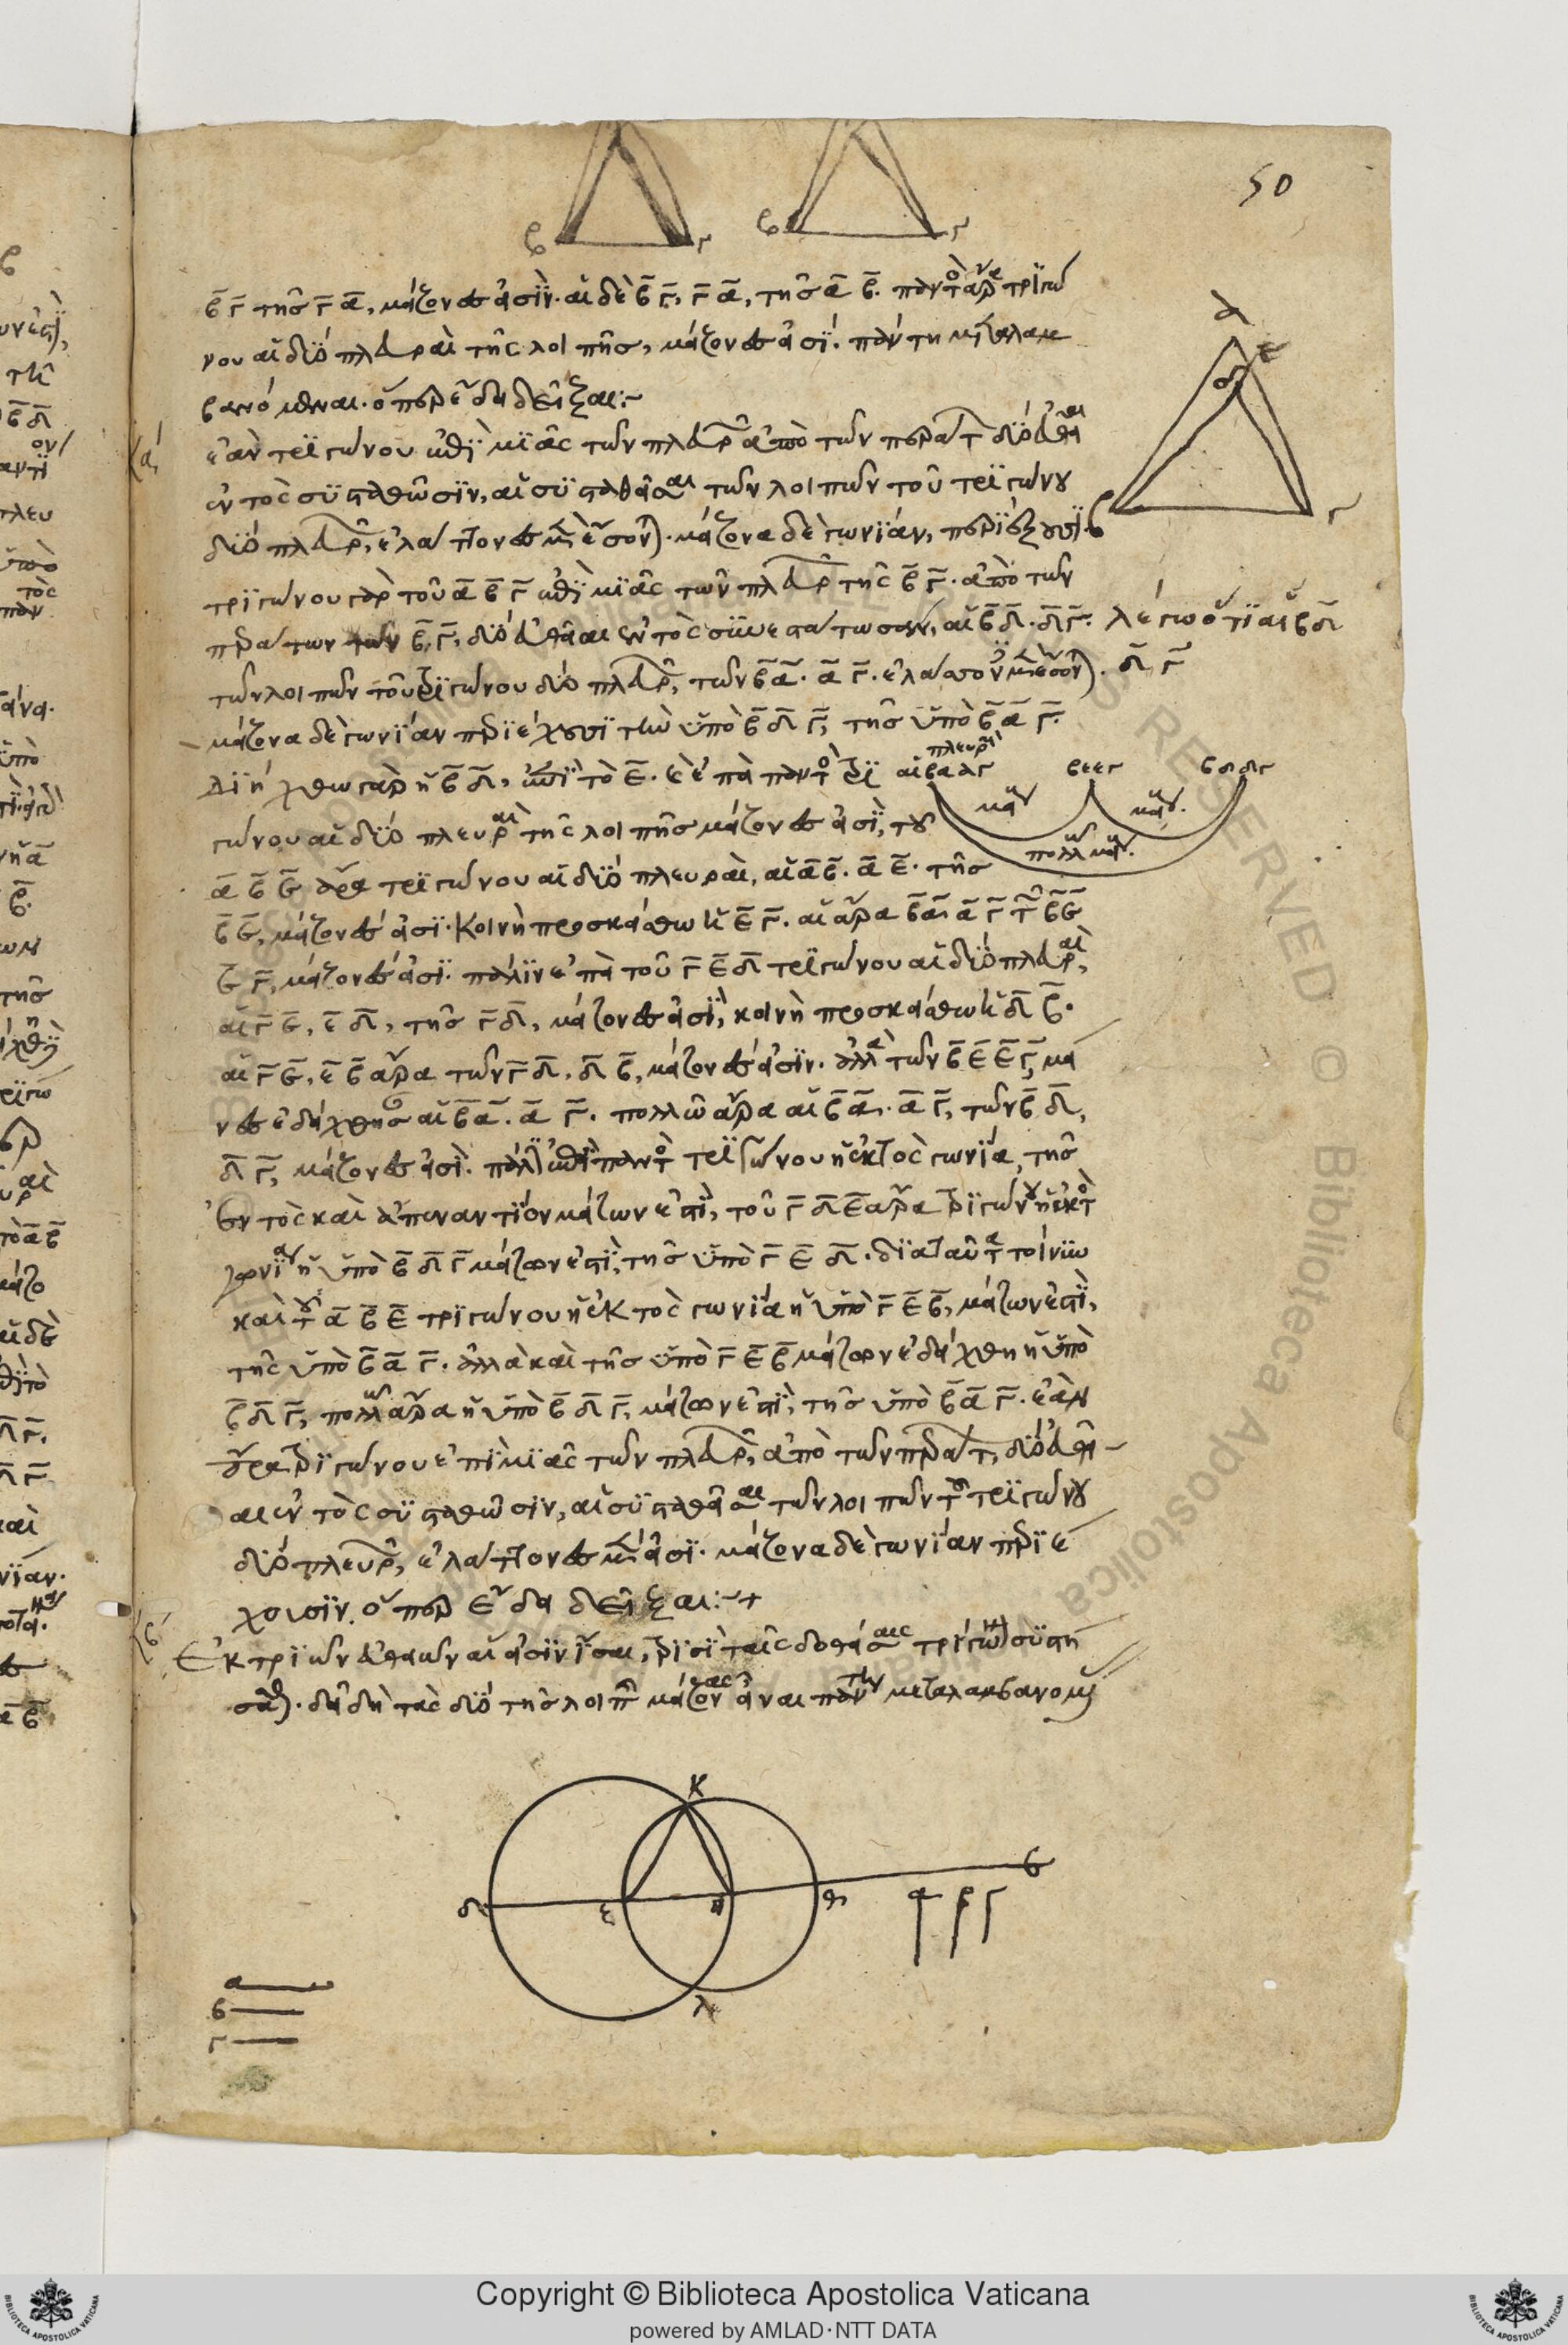 50
β γ
β γ
β̅ γ̅ τῆς γ̅ α̅, μείζονές εἰσϊν· αἱ δὲ β̅ γ̅, γ̅ α̅, τῆς α̅ β̅. παντὸς ἄρα τρϊγώ
νου αἱ δύο πλευραὶ τῆς λοιπῆς, μείζονές εἰσϊ. πάντη μεταλαμ
βανόμεναι. ὅπερ ἔδει δεῖξαι:~
κα´
ἐὰν τρϊγώνου ἐπὶ μϊᾶς τῶν πλευρῶν ἀπὸ τῶν περάτων δύο εὐθεῖαι
ἐντὸς συσταθῶσϊν, αἱ συσταθεῖσαι τῶν λοιπῶν τοῦ τρϊγώνου
δύο πλευρῶν, ἐλάττονες μὲν ἔσονται. μείζονα δὲ γωνϊάν, περιέξουσϊ.
τρϊγώνου γὰρ τοῦ α̅ β̅ γ̅ ἐπὶ μϊᾶς τῶν πλευρῶν τῆς β̅ γ̅. ἀπὸ τῶν
περάτων τῶν β̅, γ̅, δύο εὐθεῖαι ἐντὸς συνεστάτωσαν, αἱ β̅ δ̅. δ̅ γ̅. λέγω ὅτϊ αἱ β̅ δ̅
τῶν λοιπῶν τοῦ τρϊγώνου δύο πλευρῶν, τῶν β̅ α̅. α̅ γ̅. ἐλάσσονες μὲν ἔσονται. δ̅ γ̅
μείζονα δὲ γωνϊάν περϊέχουσϊ τὴν ὑπὸ β̅ δ̅ γ̅, τῆς ὑπὸ β̅ α̅ γ̅.
Διήχθω γὰρ ἡ β̅ δ̅, ἐπὶ τὸ ε̅. καὶ ἐπεὶ παντὸς τρϊ
πλευραὶ
αἱ βα αγ βε εγ βδ δγ
μείζων μείζων
πολλῷ μείζων
γώνου αἱ δύο πλευραὶ τῆς λοιπῆς μείζονές εἰσϊ, τοῦ
α̅ β̅ ε̅ ἄρα τρϊγώνου αἱ δύο πλευραὶ, αἱ α̅ β̅. α̅ ε̅. τῆς
β̅ ε̅, μείζονές εἰσϊ. Κοινὴ προσκείσθω ἡ ε̅ γ̅. αἱ ἄρα β̅ α̅, α̅ γ̅ τῶν β̅ ε̅
ε̅ γ̅, μείζονές εἰσϊ. πάλϊν ἐπεὶ τοῦ γ̅ ε̅ δ̅ τρϊγώνου αἱ δύο πλευραὶ,
αἱ γ̅ ε̅, ε̅ δ̅, τῆς γ̅ δ̅, μείζονές εἰσϊ, κοινὴ προσκείσθω ἡ δ̅ β̅.
αἱ γ̅ ε̅, ε̅ β̅ ἄρα τῶν γ̅ δ̅. δ̅ β̅, μείζονές εἰσϊν. ἀλλὰ τῶν β̅ ε̅ ε̅ γ̅, μεί
νες ἐδείχθησαν αἱ β̅ α̅. α̅ γ̅. πολλῷ ἄρα αἱ β̅ α̅. α̅ γ̅, τῶν β̅ δ̅,
δ̅ γ̅, μείζονές εἰσϊ. πάλϊν ἐπεὶ παντὸς τρϊγώνου ἡ ἐκτὸς γωνϊά, τῆς
ἐντὸς καὶ ἀπεναντϊον μείζων ἐστὶ, τοῦ γ̅ δ̅ ε̅ ἄρα τρϊγώνου ἡ ἐκτὸς
γωνία ἡ ὑπὸ β̅ δ̅ γ̅ μείζων ἐστὶ, τῆς ὑπὸ γ̅ ε̅ δ̅. δϊὰ ταῦτα τοίνυν
καὶ τοῦ α̅ β̅ ε̅ τρϊγώνου ἡ ἐκτὸς γωνϊά ἡ ὑπὸ γ̅ ε̅ β̅, μείζων ἐστὶ,
τῆς ὑπὸ β̅ α̅ γ̅. ἀλλὰ καὶ τῆς ὑπὸ γ̅ ε̅ β̅ μείζων ἐδείχθη ἡ ὑπὸ
β̅ δ̅ γ̅, πολλῷ ἄρα ἡ ὑπὸ β̅ δ̅ γ̅, μείζων ἐστὶ, τῆς ὑπὸ β̅ α̅ γ̅. ἐὰν
ἄρα τρϊγώνου ἐπὶ μϊᾶς τῶν πλευρῶν, ἀπὸ τῶν περάτων, δύο εὐθεῖ
αι ἐντὸς συσταθῶσϊν, αἱ συσταθεῖσαι τῶν λοιπῶν τοῦ τρϊγώνου
δύο πλευρῶν, ἐλάττονες μέν εἰσϊ. μείζονα δὲ γωνϊάν περϊέ
χουσϊν. ὅπερ ἔδει δεῖξαι:~+
κβ´
Ἐκ τριῶν εὐθειῶν αἵ εἰσϊν ἴσαι, τρϊσὶ ταῖς δοθείσαις τρίγωνον συστή
σασθαι. δεῖ δὴ τὰς δύο τῆς λοιπῆς μείζονας εἶναι πάντη μεταλαμβανομέν
α
ε
δ
β γ
κ
δ ε η θ β
λ
α β γ
α
β
γ
Copyright © Biblioteca Apostolica Vaticana
powered by AMLAD·NTT DATA